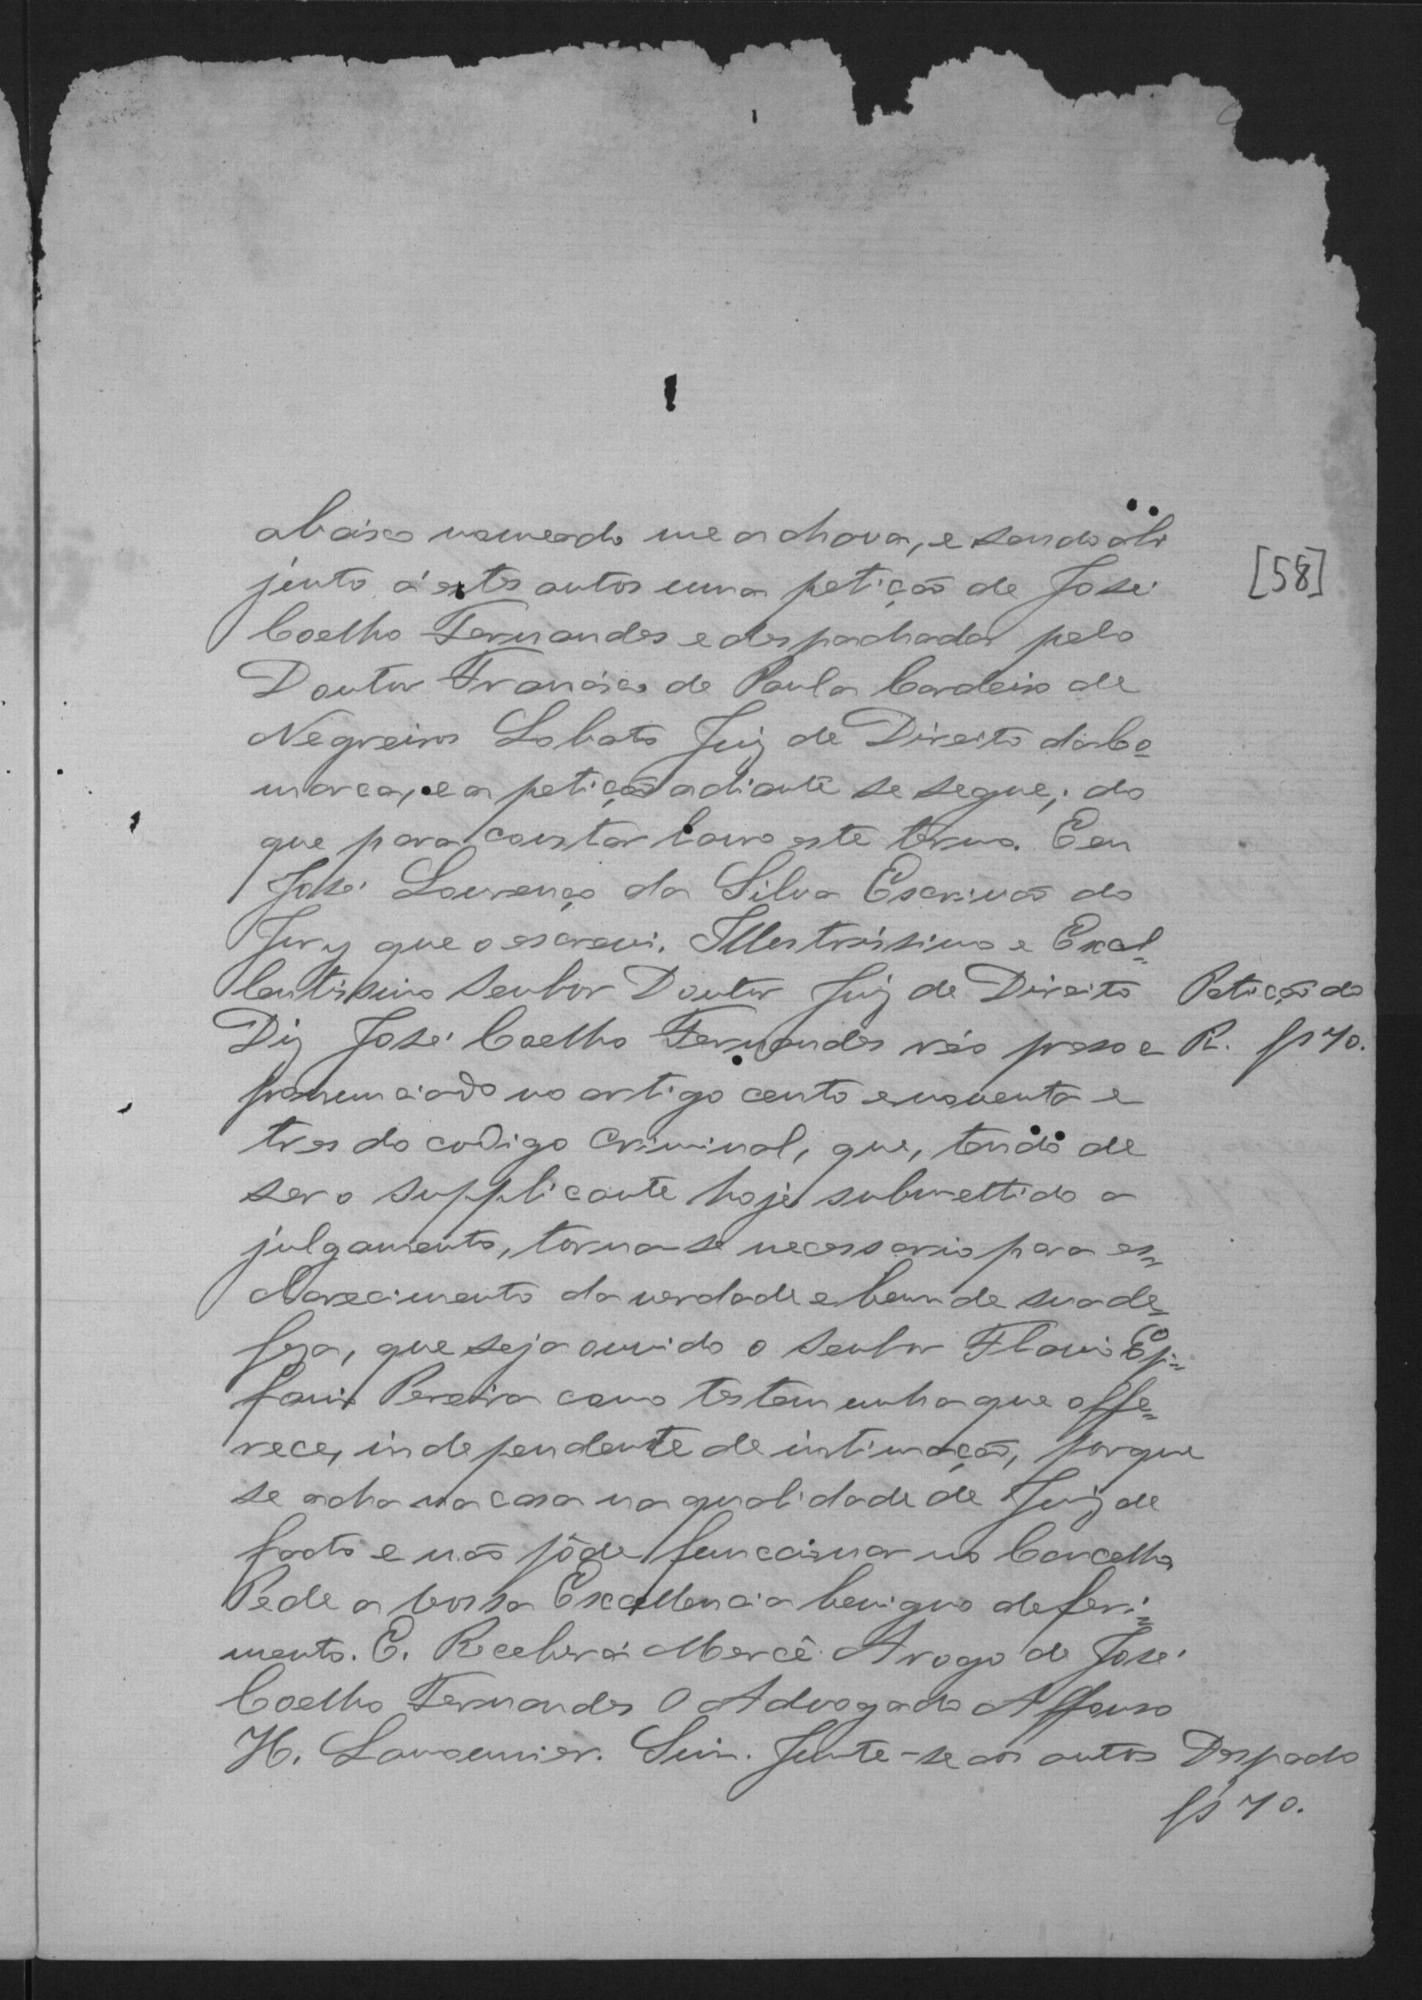 abaixo nomeado me achava, e sendo ahi
[58]
junto á estes autos uma petição de José
Coelho Fernandes e despachada pelo
Doutor Francisco de Paula Cordeiro de
Negreiros Lobato Juiz de Direito da Co=
marca, e a petição adiante se segue; do
que para constar lavro este termo. Eu
José Lourenço da Silva Escrivão do
Jury que o escrevi. Illustrissimo e Excel=
lentissimo Senhor Doutor Juiz de Direito
Petição do
Diz José Coelho Fernandes réo preso e
R. fs 70.
pronunciado no artigo cento e noventa e
tres do codigo Criminal, que, tendo de
ser o supplicante hoje submettido a
julgamento, torna-se necessario para es=
clarecimento da verdade e bem de sua de=
feza, que seja ouvido o Senhor Flavio Epi=
fanio Pereira como testemunha que offe=
rece, independente de intimação, porque
se acha na casa na qualidade de Juiz de
facto e não póde funccionar no Concelho
Pede a Vossa Excellencia benigno deferi=
mento. E. Receberá Mercê. A rogo de José
Coelho Fernandes O Advogado Affonso
H. Sim. Junte-se aos autos
Despacho
fs 70.